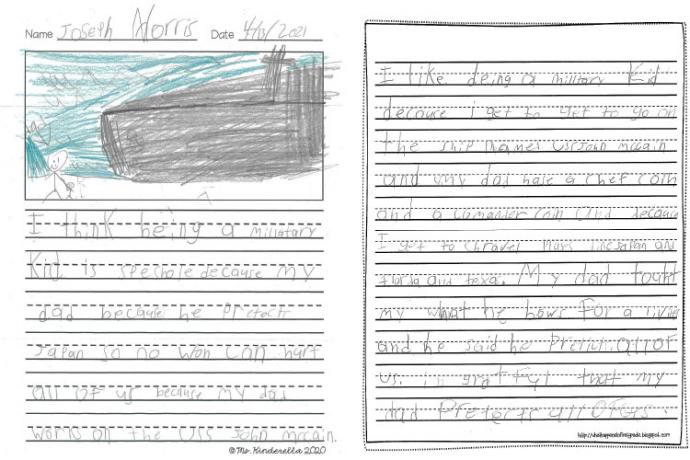 Name Joseph Norris Date 4/13/2021
I think being a millotary
Kid is speshole decause my
dad because he Pretectr
Japan so no won can hurt
all of us because my dad
work on the USS John mccain.
© Ms. Kinderella 2020
I like deing a millitary Kid
decause i get to get to go on
the ship named USS John mccain
and my dad hase a chef coin
and a comander coin and decause
I get to chravel Plases like Japan and
florida and texa. My dad tout
my what he dows For a living
and he said he Pretich all OF
us. i'm gratful that my
dad Pretectr all OF us.